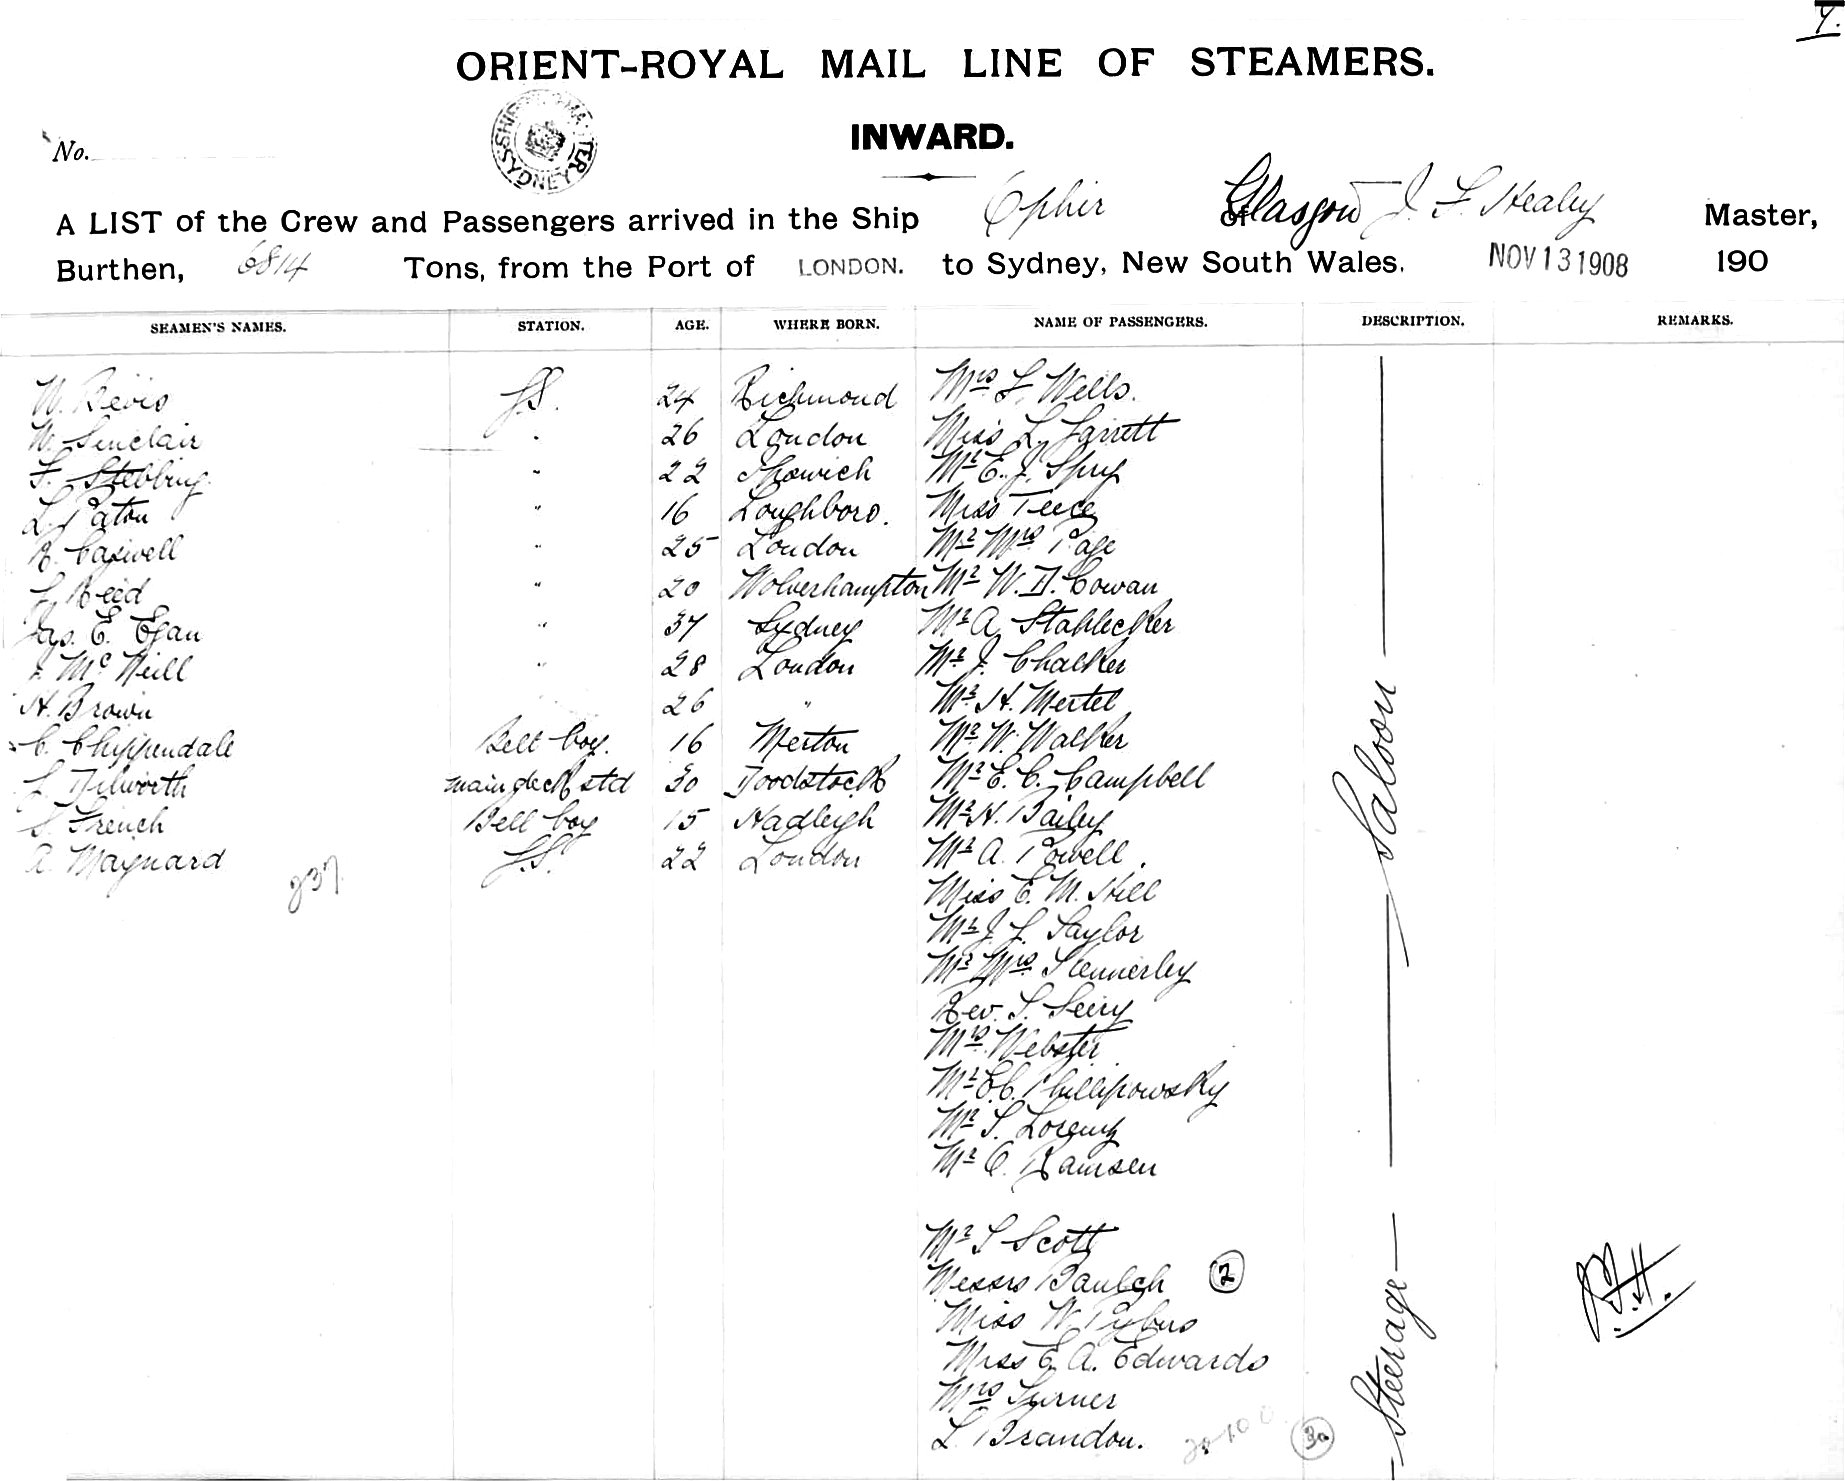 7.
ORIENT-ROYAL MAIL LINE OF STEAMERS.
INWARD.
No.
SYDNEY
A LIST of the Crew and Passengers arrived in the Ship Ophir of Glasgow J. F. Healey Master,
Burthen, 6814 Tons, from the Port of LONDON. to Sydney, New South Wales. NOV 13 1908 190
SEAMEN'S NAMES. STATION. AGE. WHERE BORN. NAME OF PASSENGERS. DESCRIPTION. REMARKS.
W. Bevis 24 Richmond Mrs F. Wells.
W. Sinclair " 26 London Miss L. Jarrett
F. Stebbing " 22 Ipswich Mr E. J. Spry
L. Paton " 16 Loughboro. Miss Teece
R. Caswell " 25 London Mr Mrs Page
Reed " 20 Wolverhampton Mr W. D. Cowan
Jas. E. Egan " 37 Sydney Mr A Stahlecker
McNeill " 28 London Mr J. Chalker
H. Brown 26 " Mr H. Mertel
C. Chippendale Bell boy. 16 Merton Mr W. Walker
Dilworth main deck std 30 Woodstock Mr E. C. Campbell
S. French Bell boy 15 Hadleigh Mr H. Bailey
A. Maynard 22 London Mr A. Powell.
237
Miss E. M. Hill
Mr J. Taylor
Mr Mrs Kennerley
Rev.
Mrs Webster
Mr E. C. Phillipowsky
Mr Lorentz
Mr Ramsen
Saloon
Mr Scott
Messrs Baulch 2
Miss W. Pybus
Miss E. A. Edwards
Mrs Turner
L. Brandon.
Steerage